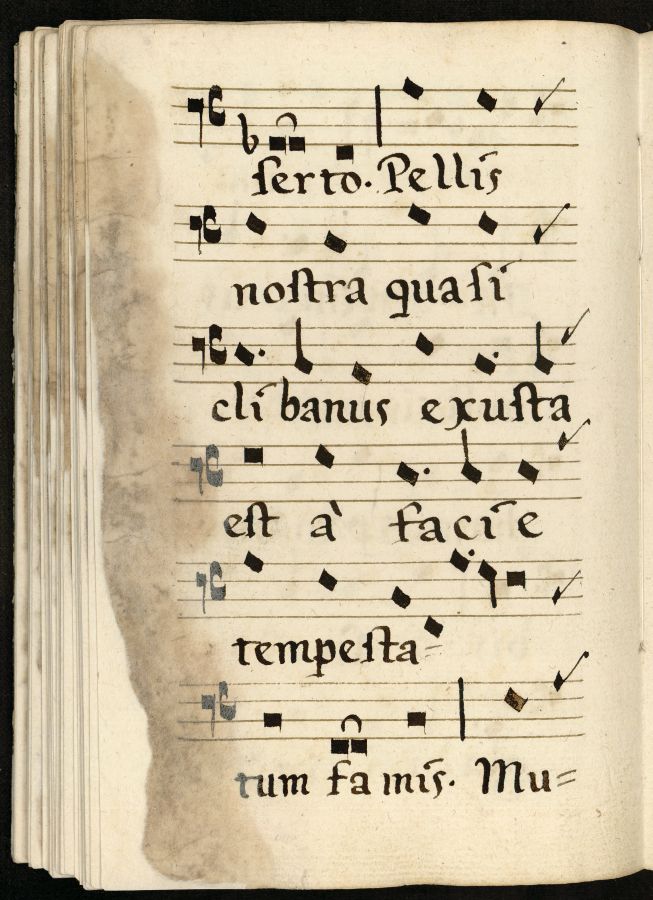 serto. Pellis
nostra quasi
clibanus exusta
est à facie
tempesta=
tum famis. Mu=